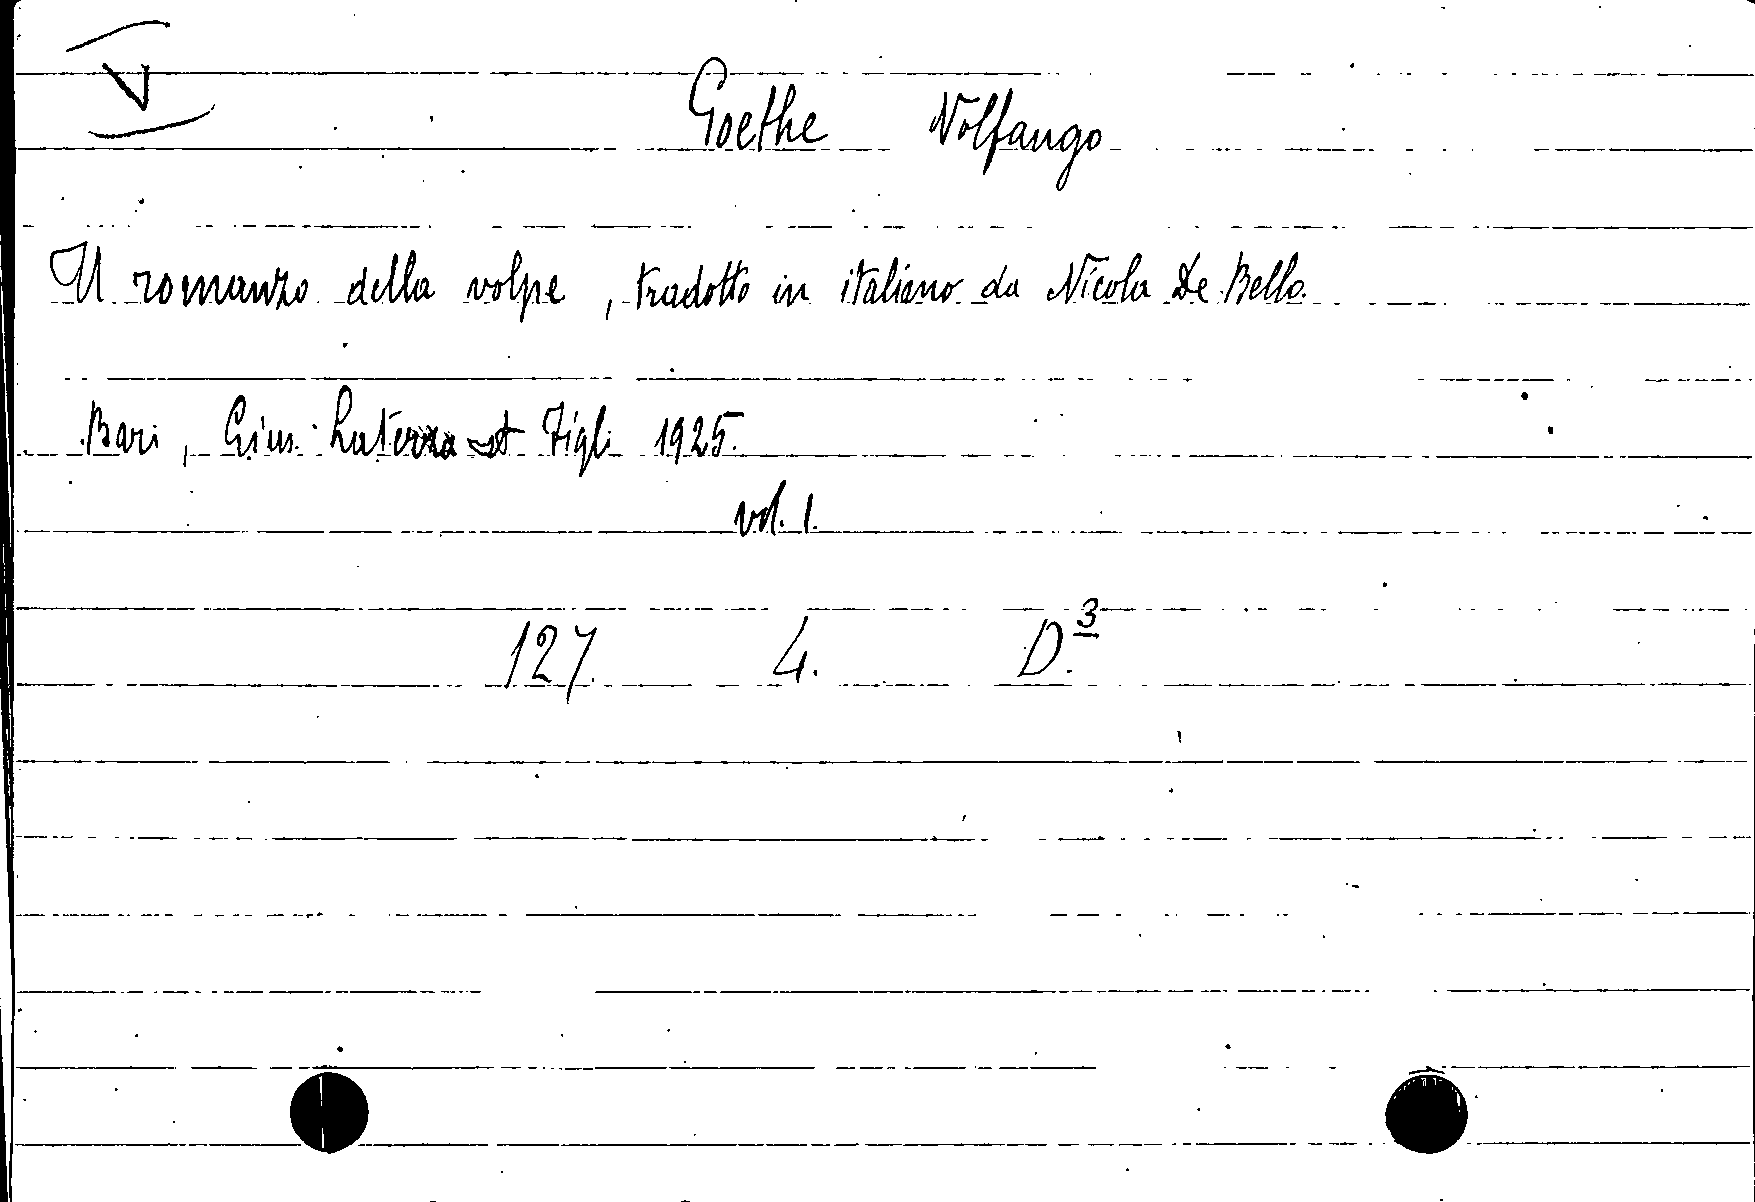 V
Goethe Volfango
Il romanzo della volpe, tradotto in italiano da Nicola De Bello.
Bari, Gius. Laterza et Figli 1925.
vol. 1.
127. 4. D.3